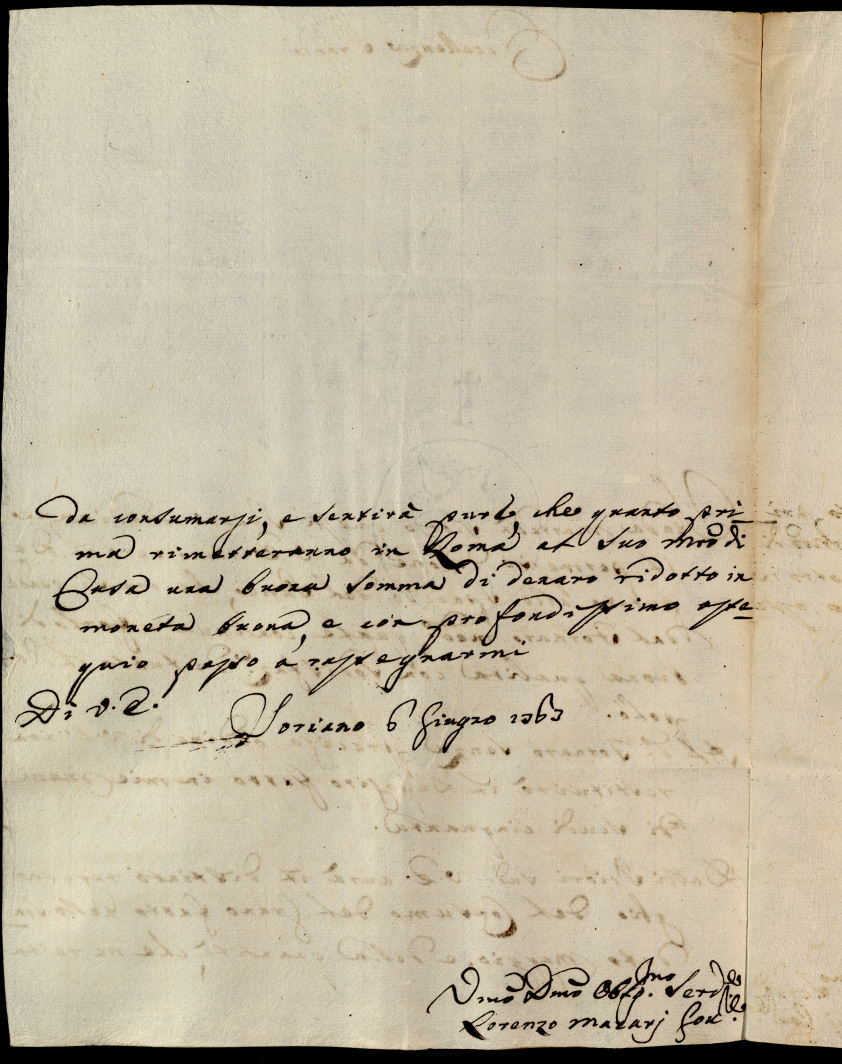 da consumarsi, e sentirà pure, che quanto pri-
ma rimetteranno in Roma al suo Mro di
Casa una buona somma di denaro ridotto in
moneta buona, e con profondissimo osse-
quio passo à rassegnarmi
Di V. E.
Soriano 6 Giugno 1763
Umo Dmo Obblgmo Serre
Lorenzo Macarj Gov.